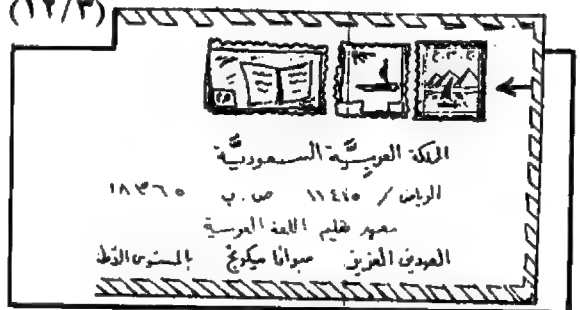 (١٢/٣)
المملكة العربية السعودية
الرياض / ١١٤٧٥ ص . ب ١٨٣٦٥
معهد تعليم اللغة العربية
الصديق العزيز بالمستوى